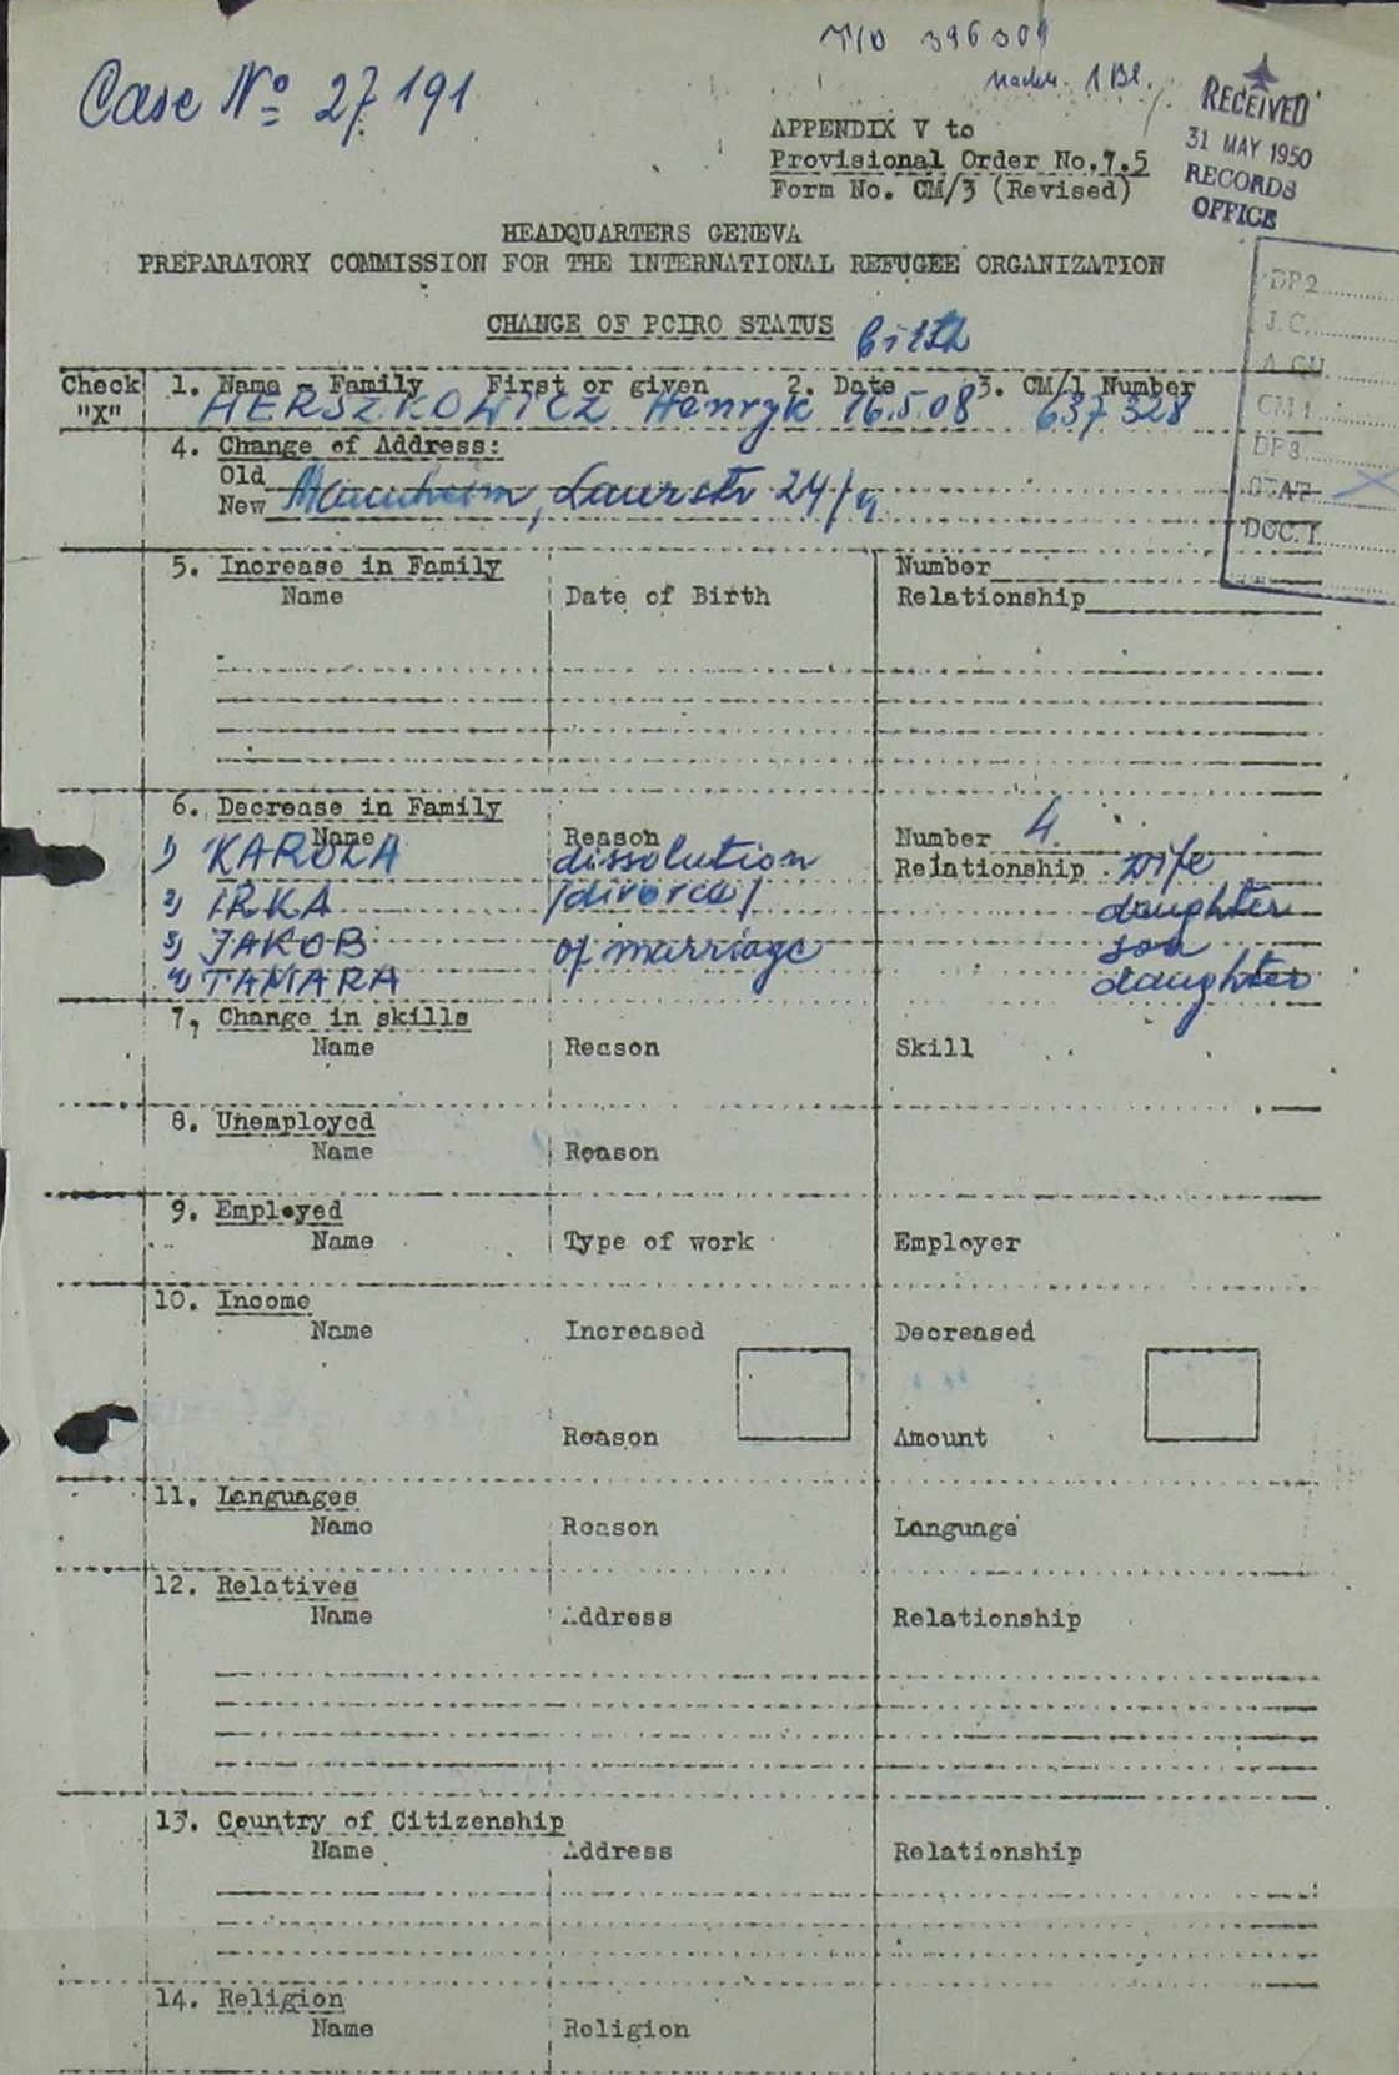 T/D 396 301
Case No 27 191
RECEIVED
31 MAY 1950
RECORDS
OFFICE
APPENDIX V to
Provisional Order No. 7.5
Form No. CM/3 (Revised)
HEADQUARTERS GENEVA
PREPARATORY COMMISSION FOR THE INTERNATIONAL REFUGEE ORGANIZATION
CHANGE OF PCIRO STATUS birth
DP2
J.C.
A.CU.
CM1
DP3
STAT X
DOC. I.
Check "X"
1. Name - Family First or given 2. Date 3. CM/1 Number
HERSZKOWICZ Henryk 16.5.08 637 328
4. Change of Address:
Old
New Mannheim, 24/
5. Increase in Family Number
Name Date of Birth Relationship
6. Decrease in Family
Name Reason Number 4.
Relationship
1) KAROLA dissolution wife
2) IRKA /divorce/ daughter
3) JAKOB of marriage son
4) TAMARA daughter
7, Change in skills
Name Reason Skill
8. Unemployed
Name Reason
9. Employed
Name Type of work Employer
10. Income
Name Increased Decreased
Reason Amount
11. Languages
Name Reason Language
12. Relatives
Name Address Relationship
13. Country of Citizenship
Name Address Relationship
14. Religion
Name Religion